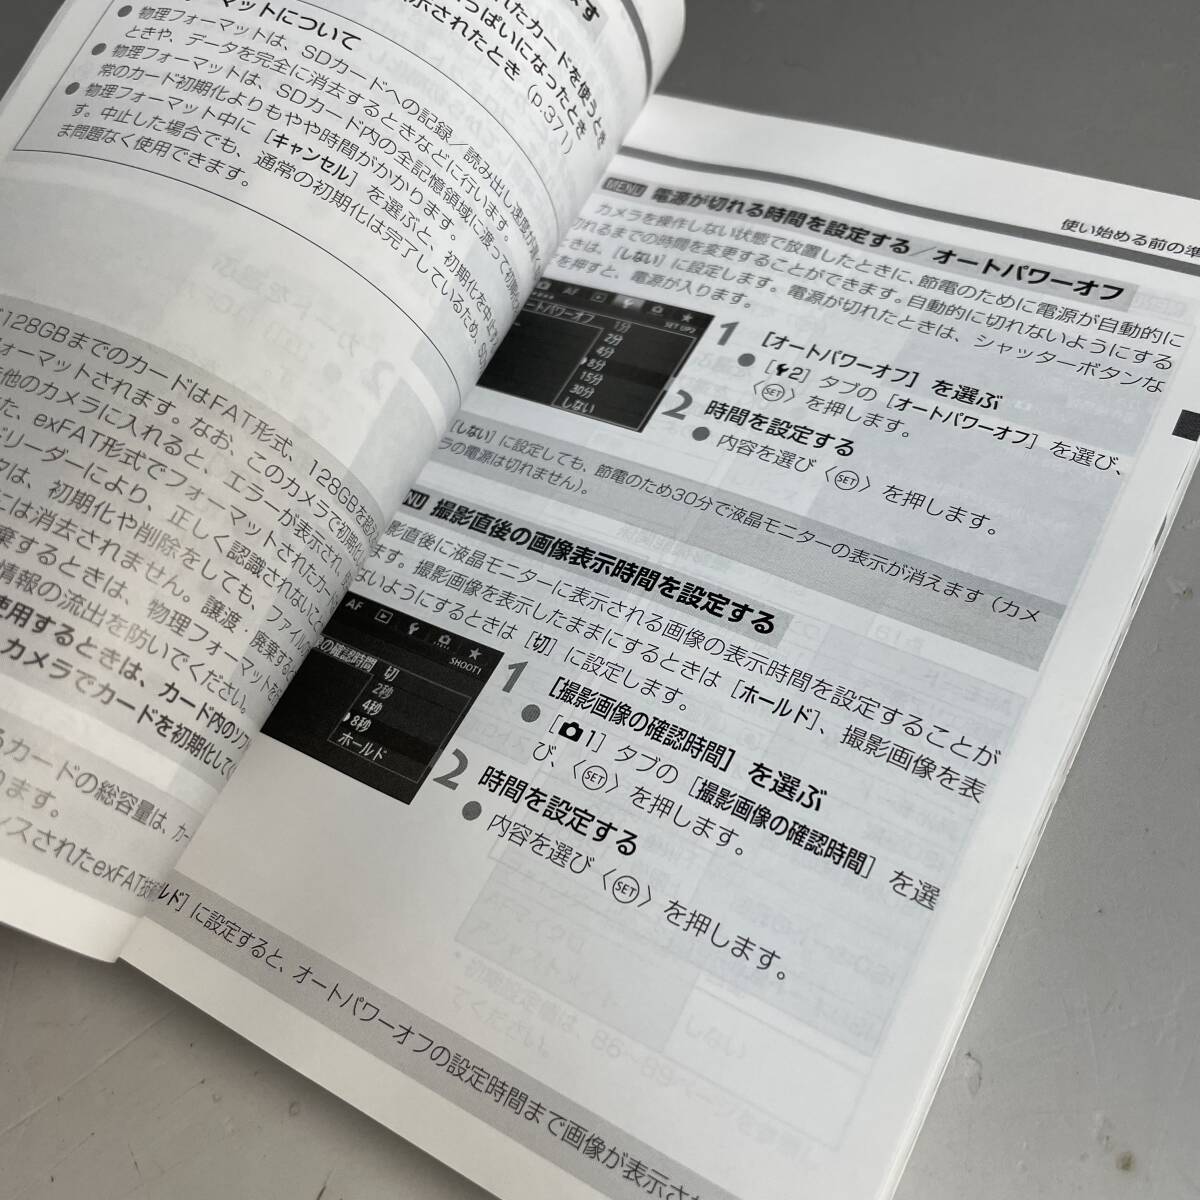 れたカードを使うとき
っぱいになったとき
示されたとき（p.371）
ォーマットについて
● 物理フォーマットは、SDカードへの記録／読み出し速度が
ときや、データを完全に消去するときなどに行います。
● 物理フォーマットは、SDカード内の全記憶領域に渡って初期化
常のカード初期化よりもやや時間がかります。
● 物理フォーマット中に［キャンセル］を選ぶと、初期化を中止
す。中止した場合でも、通常の初期化は完了しているため、SD
ま問題なく使用できます。
128GBまでのカードはFAT形式、128GBを超え
ォーマットされます。なお、このカメラで初期化し
他のカメラに入れると、エラーが表示され
た、exFAT形式でフォーマットされたカー
ドリーダーにより、正しく認識されないこ
タは、初期化や削除をしても、ファイル
には消去されません。譲渡・廃棄する
棄するときは、物理フォーマットを
情報の流出を防いでください。
使用するときは、カード内のソフ
カメラでカードを初期化して
るカードの総容量は、カー
ります。
ンスされたexFAT技
使い始める前の準
MENU 電源が切れる時間を設定する／オートパワーオフ
カメラを操作しない状態で放置したときに、節電のために電源が自動的に
切れるまでの時間を変更することができます。自動的に切れないようにする
ときは、［しない］に設定します。電源が切れたときは、シャッターボタンな
を押すと、電源が入ります。
AF
SET UP2
ートパワーオフ
1分
2分
4分
8分
15分
30分
しない
1 ［オートパワーオフ］を選ぶ
● ［2］タブの［オートパワーオフ］を選び、
〈SET〉を押します。
2 時間を設定する
● 内容を選び〈SET〉を押します。
［しない］に設定しても、節電のため30分で液晶モニターの表示が消えます（カメ
ラの電源は切れません）。
NU 撮影直後の画像表示時間を設定する
影直後に液晶モニターに表示される画像の表示時間を設定することが
ます。撮影画像を表示したままにするときは［ホールド］、撮影画像を表
ないようにするときは［切］に設定します。
AF
SHOOT1
の確認時間
切
2秒
4秒
8秒
ホールド
1 ［撮影画像の確認時間］を選ぶ
● ［1］タブの［撮影画像の確認時間］を選
び、〈SET〉を押します。
2 時間を設定する
● 内容を選び〈SET〉を押します。
ルド］に設定すると、オートパワーオフの設定時間まで画像が表示され